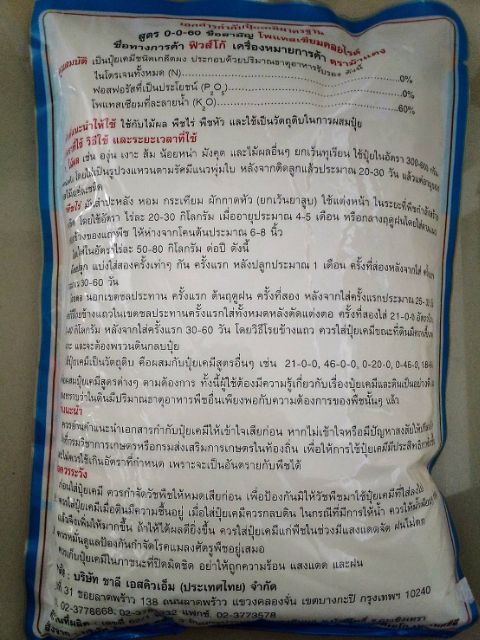 เอกสารกำกับปุ๋ยเคมีมาตรฐาน
สูตร 0-0-60 ชื่อสามัญ โพแทสเซียมคลอไรด์
ชื่อทางการค้า ฟิวส์โก้ เครื่องหมายการค้า ตราม้าแดง
คุณสมบัติ เป็นปุ๋ยเคมีชนิดเกล็ดผง ประกอบด้วยปริมาณธาตุอาหารรับรอง ดังนี้
ไนโตรเจนทั้งหมด (N) 0%
ฟอสฟอรัสที่เป็นประโยชน์ (P2O5) 0%
โพแทสเซียมที่ละลายน้ำ (K2O) 60%
แนะนำให้ใช้ ใช้กับไม้ผล พืชไร่ พืชหัว และใช้เป็นวัตถุดิบในการผสมปุ๋ย
ที่ใช้ วิธีใช้ และระยะเวลาที่ใช้
ไม้ผล เช่น องุ่น เงาะ ส้ม น้อยหน่า มังคุด และไม้ผลอื่นๆ ยกเว้นทุเรียน ใช้ปุ๋ยในอัตรา 300-600
โดยโรยเป็นรูปวงแหวนตามรัศมีแนวพุ่มใบ หลังจากติดลูกแล้วประมาณ 20-30 วัน
พืชไร่ มันสำปะหลัง หอม กระเทียม ผักกาดหัว (ยกเว้นยาสูบ) ใช้แต่งหน้า ในระยะที่พืชกำลัง
โดยใช้อัตรา ไร่ละ 20-30 กิโลกรัม เมื่ออายุประมาณ 4-5 เดือน หรือกลางฤดูฝนโดยใส่
ข้างของแถวพืช ให้ห่างจากโคนต้นประมาณ 6-8 นิ้ว
ใส่ในอัตราไร่ละ 50-80 กิโลกรัม ต่อปี ดังนี้
ปลูก แบ่งใส่สองครั้งเท่าๆ กัน ครั้งแรก หลังปลูกประมาณ 1 เดือน ครั้งที่สองหลังจากใส่ ครั้งแรก
30-60 วัน
ตอ นอกเขตชลประทาน ครั้งแรก ต้นฤดูฝน ครั้งที่สอง หลังจากใส่ครั้งแรกประมาณ
วิธีโรยข้างแถวในเขตชลประทานครั้งแรกใส่ทั้งหมดหลังตัดแต่งตอ ครั้งที่สองใส่ 21-0-0
กิโลกรัม หลังจากใส่ครั้งแรก 30-60 วัน โดยวิธีโรยข้างแถว ควรใส่ปุ๋ยเคมีขณะที่ดินมีความชื้น
และจะต้องพรวนดินกลบปุ๋ย
ใส่ปุ๋ยเคมีเป็นวัตถุดิบ คือผสมกับปุ๋ยเคมีสูตรอื่นๆ เช่น 21-0-0, 46-0-0, 0-20-0, 0-46-0,
ผสมปุ๋ยเคมีสูตรต่างๆ ตามต้องการ ทั้งนี้ผู้ใช้ต้องมีความรู้เกี่ยวกับเรื่องปุ๋ยเคมีและดินเป็นอย่างดี
ทราบว่าในดินมีปริมาณธาตุอาหารพืชอื่นเพียงพอกับความต้องการของพืชนั้นๆ แล้ว
แนะนำ
ควรอ่านคำแนะนำเอกสารกำกับปุ๋ยเคมีให้เข้าใจเสียก่อน หากไม่เข้าใจหรือมีปัญหาสงสัยให้
ที่กรมวิชาการเกษตรหรือกรมส่งเสริมการเกษตรในท้องถิ่น เพื่อให้การใช้ปุ๋ยเคมีมีประสิทธิภาพ
ไม่ควรใช้เกินอัตราที่กำหนด เพราะจะเป็นอันตรายกับพืชได้
ข้อควรระวัง
ก่อนใส่ปุ๋ยเคมี ควรกำจัดวัชพืชให้หมดเสียก่อน เพื่อป้องกันมิให้วัชพืชมาใช้ปุ๋ยเคมีที่ใส่ลงไป
ควรใส่ปุ๋ยเคมีเมื่อดินมีความชื้นอยู่ เมื่อใส่ปุ๋ยเคมีควรกลบดิน ในกรณีที่มีการให้น้ำ
แล้วจึงเพิ่มให้มากขึ้น ถ้าให้ได้ผลดียิ่งขึ้น ควรใส่ปุ๋ยเคมีแก่พืชในช่วงมีแสงแดดจัด ฝนไม่ตก
ควรหมั่นดูแลป้องกันกำจัดโรคแมลงศัตรูพืชอยู่เสมอ
ควรเก็บปุ๋ยเคมีในภาชนะที่ปิดมิดชิด อย่าให้ถูกความร้อน แสงแดด และฝน
บริษัท ชาลี เอสคิวเอ็ม (ประเทศไทย) จำกัด
31 ซอยลาดพร้าว 138 ถนนลาดพร้าว แขวงคลองจั่น เขตบางกะปิ กรุงเทพฯ 10240
02-3778668, แฟกซ์. 02-3773578